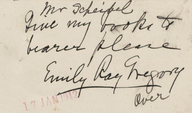 Mr Scheifel
Give my books to
bearer please
Emily Ray Gregory
over
17 JAN